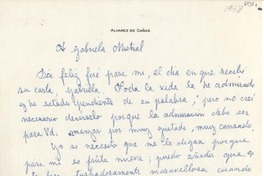 ALVAREZ DE CAÑAS
1948
A Gabriela Mistral
Día feliz fué para mí, el día en que recibí
su carta, Gabriela. Toda la vida la he admirado
y he estado pendiente de su palabra, pero no creí
necesario decírselo porque la admiración debe ser
para Vd. manjar por muy gustado, muy cansado.
Yo sé necesito que me lo digan porque
para mí es fruta nueva; puedo añadir que